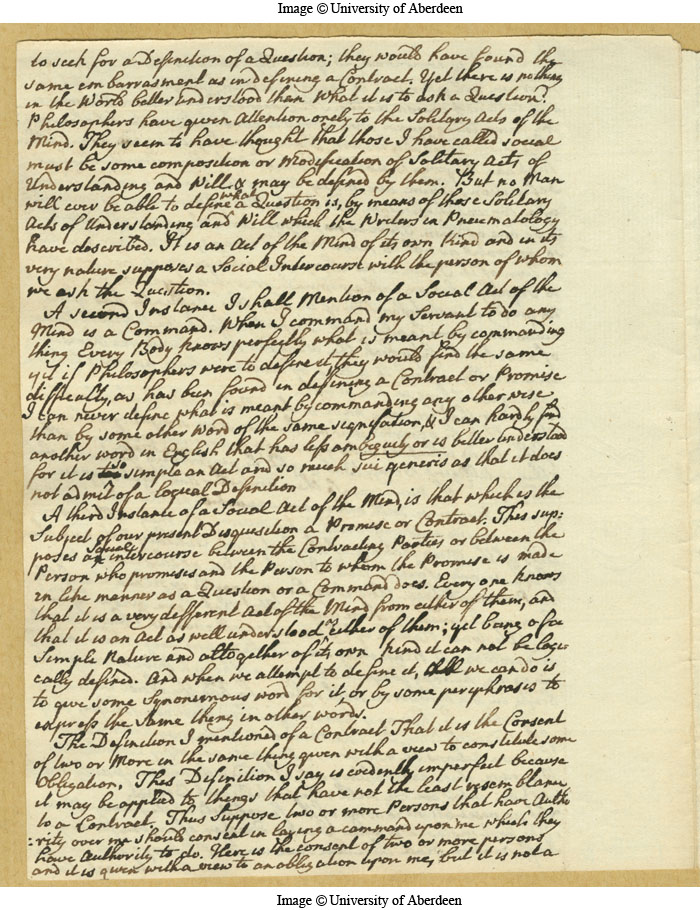 Image © University of Aberdeen
to seek for a Definition of a Question; they would have found the
same embarrasment as in defining a Contract. Yet there is nothing
in the World better understood than What it is to ask a Question.
Philosophers have given Attention onely to the Solitary Acts of the
Mind. They seem to have thought that those I have called social
must be some composition or Modification of Solitary Acts of
Understanding and Will & may be defined by them. But no Man
will ever be able to define what a Question is, by means of those Solitary
Acts of Understanding and Will which the Writers in Pneumatology
have described. It is an Act of the Mind of its own Kind and in its
very nature supposes a Social Intercourse with the person of whom
we ask the Question.
A second Instance I shall Mention of a Social Act of the
Mind is a Command. When I command my Servant to do any
thing Every Body knows perfectly what is meant by commanding
yet if Philosophers were to define it they would find the same
difficulty, as has been found in defining a Contract or Promise
I can never define what is meant by commanding any other wise
than by some other Word of the same signification, & I can hardly find
another word in English that has less ambiguity or is better understood
for it is so simple an Act and so much sui generis as that it does
not admit of a logical Definition
A third Instance of a Social Act of the Mind, is that which is the
Subject of our present Disquisition a Promise or Contract. This sup:
poses a Social intercourse between the Contracting Parties or between the
Person who promises and the Person to whom the Promise is made
in like manner as a Question or a Command does. Every one knows
that it is a very different Act of the Mind from either of them, and
that it is an Act as well understood as either of them; yet being of a
Simple Nature and altogether of its own kind it can not be logi
cally defined. And when we attempt to define it, all we can do is
to give some Synonimous word for it or by some periphrasis to
express the same thing in other words.
The Definition I mentioned of a Contract That it is the Consent
of two or More in the same thing given with a view to constitute some
Obligation. This Definition I say is evidently imperfect because
it may be applied to things that have not the least resemblance
to a Contract. Thus Suppose two or more Persons that have Autho
:rity over me should consent in laying a command upon me which they
have Authority to do. Here is the consent of two or more persons
and it is given with a view to an obligation upon me, but it is not a
Image © University of Aberdeen